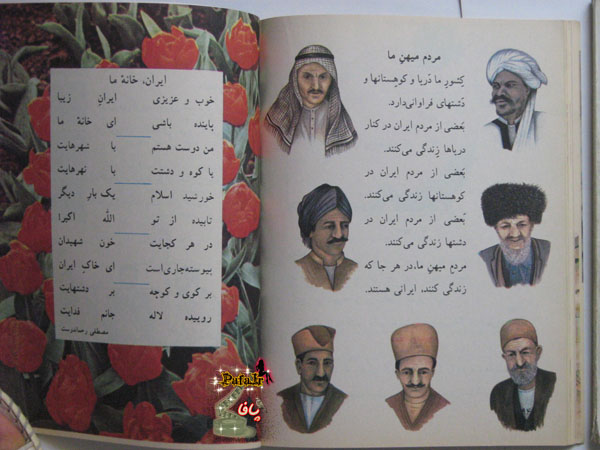 مردم میهنِ ما
کشورِ ما دریا و کوهستانها و
دشتهای فراوانی دارد.
بَعضی از مردم ایران در کنار
دریاها زندگی می‌کنند.
بَعضی از مردم ایران در
کوهستانها زندگی می‌کنند.
بَعضی از مردم ایران در
دشتها زندگی می‌کنند.
مردمِ میهنِ ما، در هر جا که
زندگی کنند، ایرانی هستند.
ایران، خانهٔ ما
خوب و عزیزی ایرانِ زیبا
پاینده باشی ای خانهٔ ما
من دوست هستم با شهرهایت
با کوه و دشتت با نهرهایت
خورشید اسلام یک بارِ دیگر
تابیده از تو اللهُ اکبر!
در هر کجایت خون شهیدان
پیوسته جاری است ای خاکِ ایران
بر کوی و کوچه بر دشتهایت
روییده لاله جانم فدایت
مصطفی رحماندوست
پافا